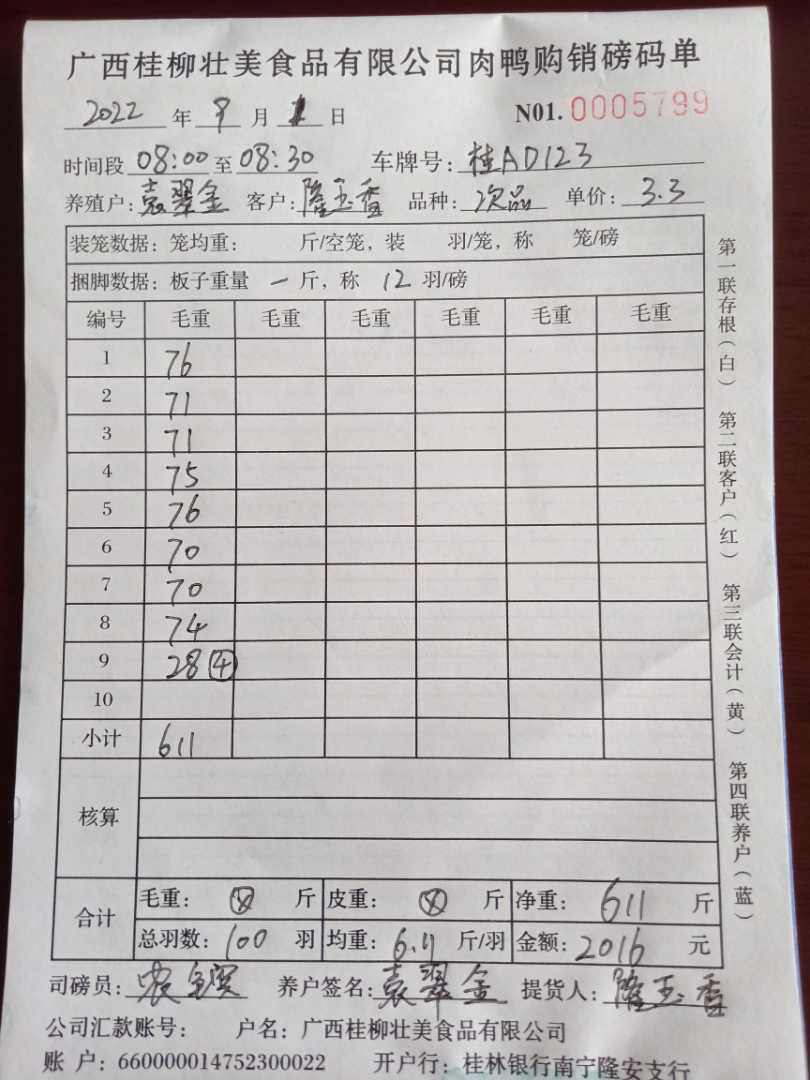 广西桂柳壮美食品有限公司肉鸭购销磅码单
2022 年 9 月 1 日 N01. 0005799
时间段 08:00 至 08:30 车牌号: 桂AD123
养殖户: 袁翠金 客户: 隆玉香 品种: 次品 单价: 3.3
装笼数据: 笼均重: 斤/空笼, 装 羽/笼, 称 笼/磅
捆脚数据: 板子重量 一 斤, 称 12 羽/磅
编号 毛重 毛重 毛重 毛重 毛重 毛重
1 76
2 71
3 71
4 75
5 76
6 70
7 70
8 74
9 28 ④
10
小计 611
核算
合计
毛重: ⊗ 斤 皮重: ⊗ 斤 净重: 611 斤
总羽数: 100 羽 均重: 6.11 斤/羽 金额: 2016 元
司磅员: 农 养户签名: 袁翠金 提货人: 隆玉香
公司汇款账号: 户名: 广西桂柳壮美食品有限公司
账 户: 660000014752300022 开户行: 桂林银行南宁隆安支行
第一联存根(白) 第二联客户(红) 第三联会计(黄) 第四联养户(蓝)